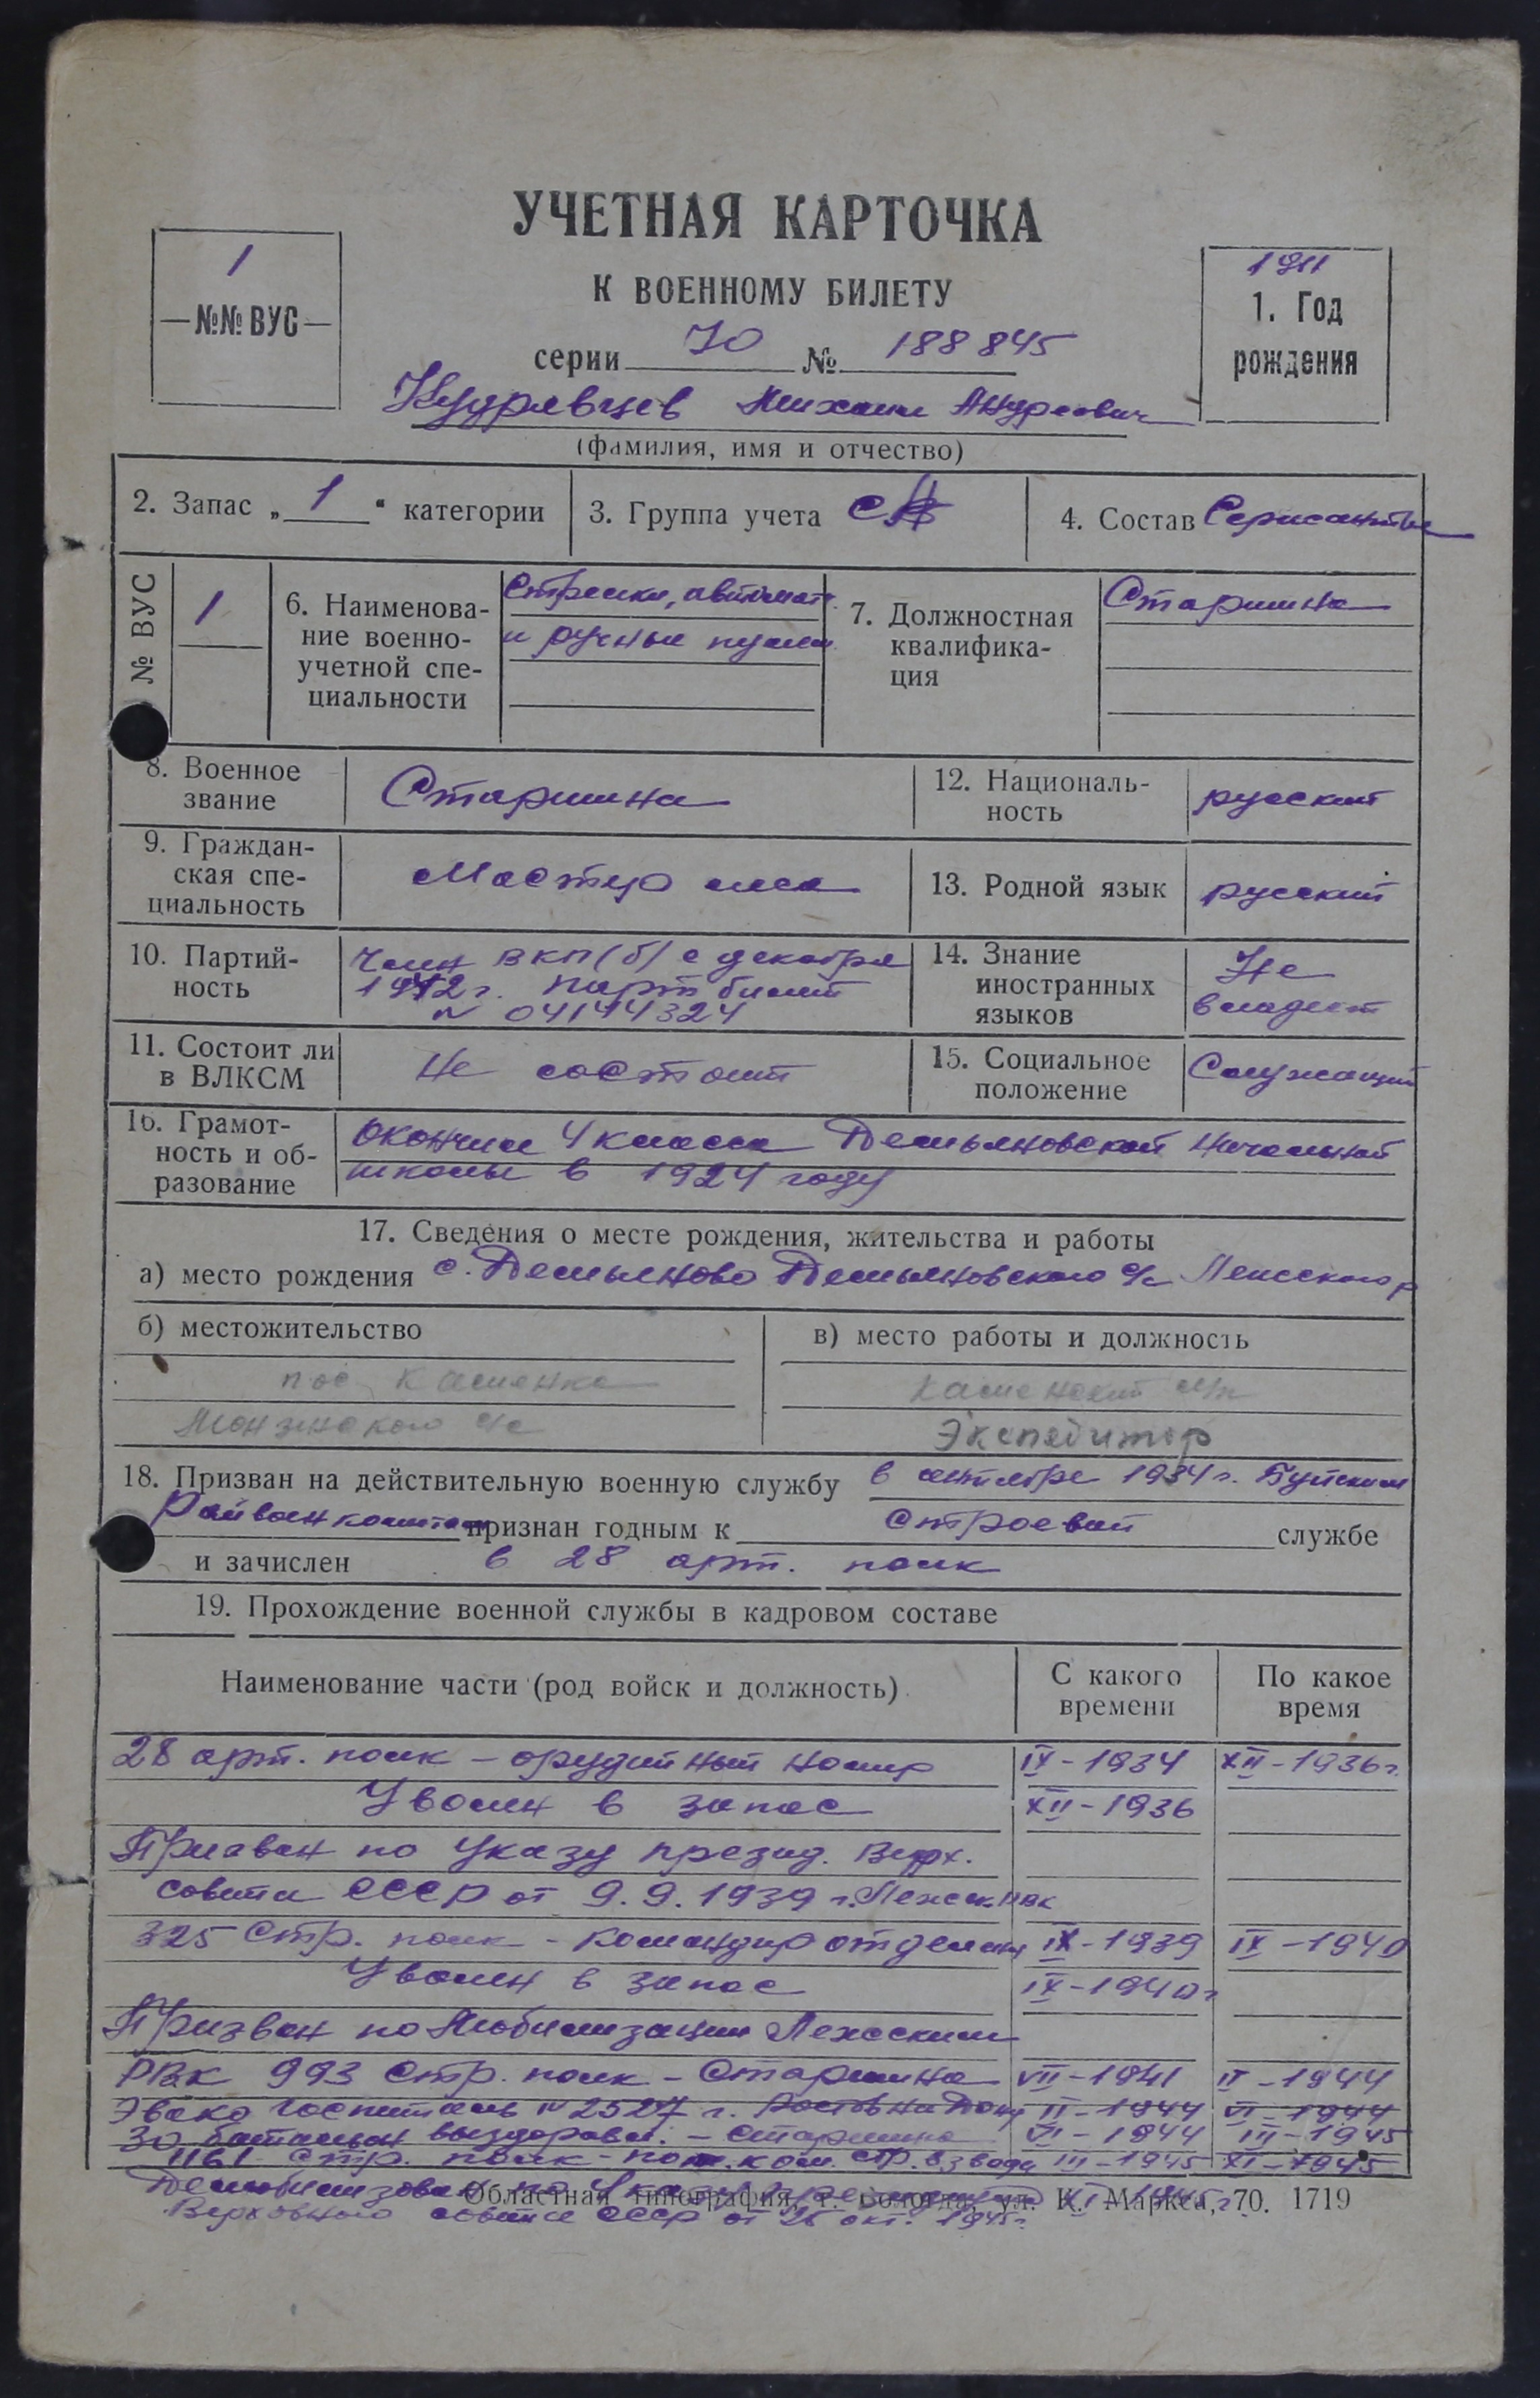 УЧЕТНАЯ КАРТОЧКА
К ВОЕННОМУ БИЛЕТУ
1
—№№ ВУС—
1911
1. Год
рождения
серии 70 № 188845
Кудрявцев Михаил Андреевич
(фамилия, имя и отчество)
2. Запас „ 1 “ категории
3. Группа учета СА
4. Состав Сержанты
№ ВУС
1
6. Наименова-
ние военно-
учетной спе-
циальности
Стрелки, автомат.
и ручные пулем
7. Должностная
квалифика-
ция
Старшина
8. Военное
звание
Старшина
12. Националь-
ность
русский
9. Граждан-
ская спе-
циальность
Мастер леса
13. Родной язык
русский
10. Партий-
ность
Член ВКП(б) с декабря
1942 г. парт билет
№ 04144324
14. Знание
иностранных
языков
Не
владеет
11. Состоит ли
в ВЛКСМ
Не состоит
15. Социальное
положение
Служащий
16. Грамот-
ность и об-
разование
Окончил 4 класса Демьяновской начальной
школы в 1924 году
17. Сведения о месте рождения, жительства и работы
а) место рождения с. Демьяново Демьяновского с/с Лежского р
б) местожительство
пос. Каменка
Монзенского с/с
в) место работы и должность
Каменский л/п
Экспедитор
18. Призван на действительную военную службу в сентябре 1934 г. Буйским
Райвоенкоматом признан годным к строевой службе
и зачислен в 28 арт. полк
19. Прохождение военной службы в кадровом составе
Наименование части (род войск и должность)
С какого
времени
По какое
время
28 арт. полк – орудийный номер IX-1934 XII-1936 г.
Уволен в запас XII-1936
Призван по Указу презид. Верх.
совета СССР от 9.9.1939 г. Лежск. РВК
325 Стр. полк - командир отделен IX-1939 IX-1940
Уволен в запас IX-1940 г
Призван по Мобилизации Лежским
РВК 993 Стр. полк – Старшина VII-1941 II-1944
Эвако госпиталь № 2527 г. Ростов на Дону II-1944 VI-1944
30 батальон выздоравл. – старшина VI-1944 III-1945
1161 стр. полк - пом. ком. стр. взвода III-1945 XI-1945
Демобилизован по Указу президиума XI-1945 г.
Верховного совета СССР от 25 окт. 1945 г.
Областная типография, г. Вологда, ул. К. Маркса, 70. 1719